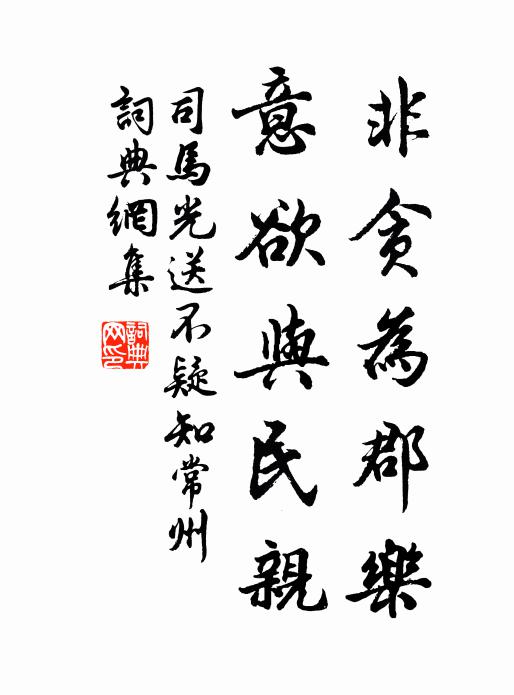 非貪為郡樂
意欲與民親
司馬光送不疑知常州
詞典網集
詞典網印